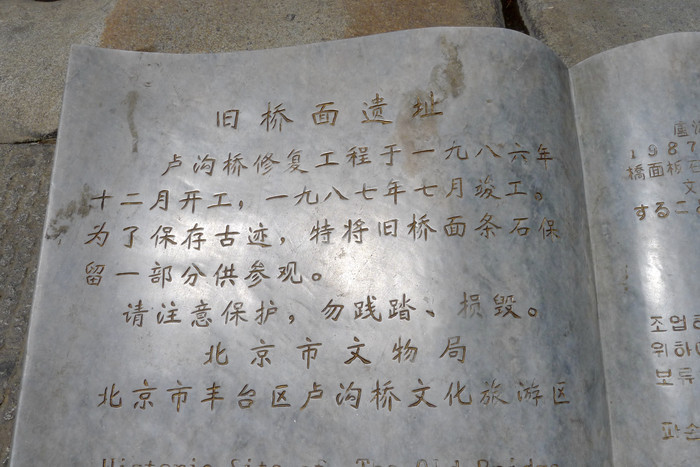 旧桥面遗址
卢沟桥修复工程于一九八六年
十二月开工，一九八七年七月竣工。
为了保存古迹，特将旧桥面条石保
留一部分供参观。
请注意保护，勿践踏、损毁。
北京市文物局
北京市丰台区卢沟桥文化旅游区
Historic Site of The Old Bridge
盧溝
1987
橋面板
文
すること
조업
위하
보듀
파손